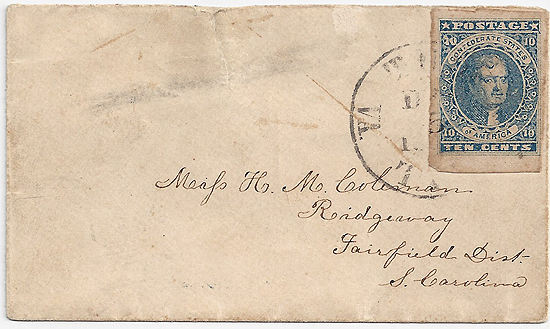 POSTAGE
10 CONFEDERATE STATES 10
10 OF AMERICA 10
TEN CENTS
VA
Miss H. M. Coleman
Ridgeway
Fairfield Dist.
S. Carolina